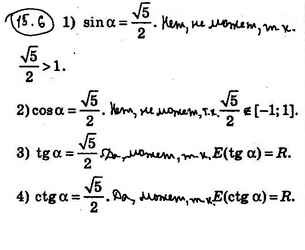 15.6 1) sin α = √5/2. Нет, не может, т.к.
√5/2 > 1.
2) cos α = √5/2. Нет, не может, т.к. √5/2 ∉ [–1; 1].
3) tg α = √5/2. Да, может, т.к. E(tg α) = R.
4) ctg α = √5/2. Да, может, т.к. E(ctg α) = R.